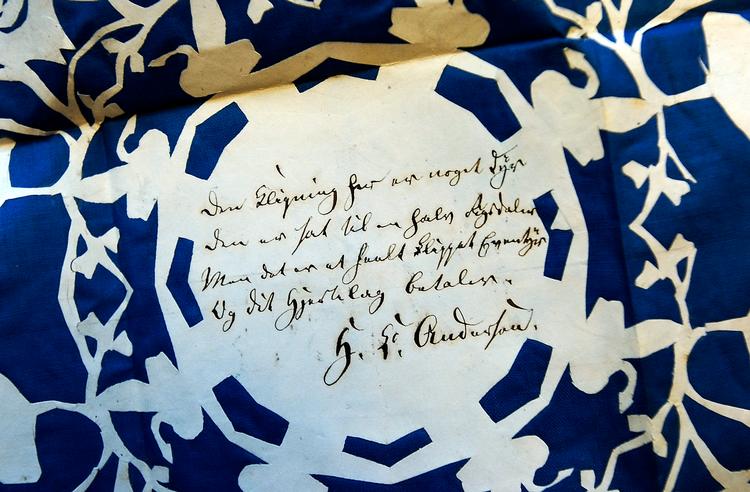 Den Klipning her er noget dyr
Den er sat til en halv Rigsdaler
Men det er et heelt klippet Eventyr
Og dit Hjertelag betaler.
H. C. Andersen.